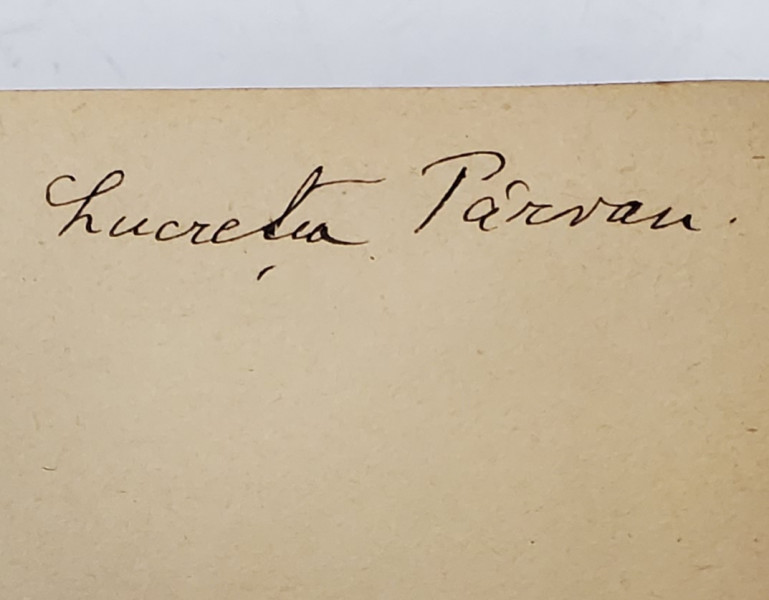 Lucreția Pârvan.